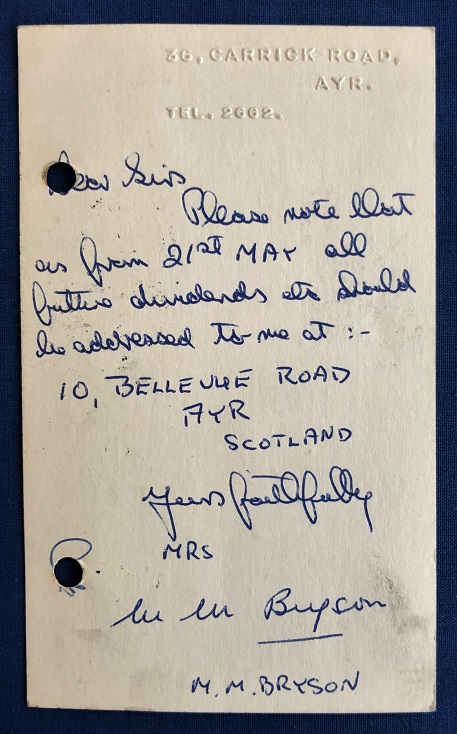 36, CARRICK ROAD,
AYR.
TEL. 2662.
Dear Sirs
Please note that
as from 21st MAY all
future dividends etc should
be addressed to me at :-
10, BELLEVUE ROAD
AYR
SCOTLAND
Yours faithfully
MRS
M M Bryson
M. M. BRYSON